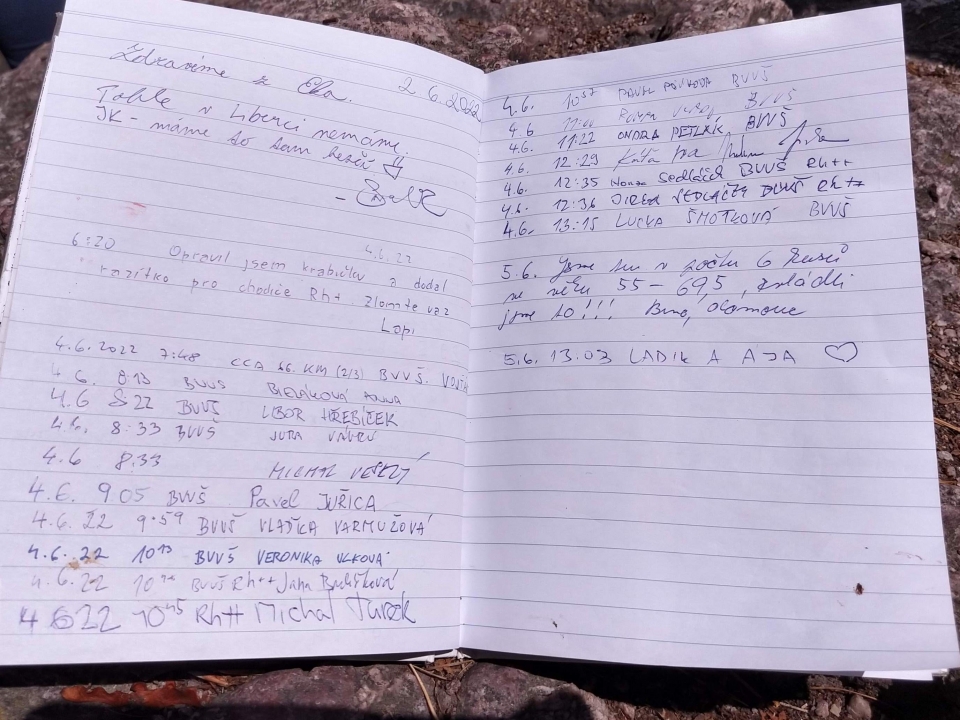 Zdravíme z
2.6.2022
Tohle v Liberci nemáme.
JK - máme to tam hezčí
6:20
4.6.22
Opravil jsem krabičku a dodal
razítko pro chodiče Rh+. Zlomte vaz
Lopi
4.6.2022 7:48 CCA 26. KM (2/3) BVVŠ.
4 6. 8:13 BVVŠ
4.6 8 22 BVVŠ LIBOR HŘEBÍČEK
4.6. 8:33 BVVŠ JURA
4.6 8:33 MICHAL VESELÝ
4.6. 9.05 BVVŠ Pavel JUŘICA
4.6.22 9.59 BVVŠ VLAĎKA VARMUŽOVÁ
4.6.22 10 13 BVVŠ VERONIKA VLKOVÁ
4.6.22 BVVŠ Rh++ Jana
4 6 22 10 45 Rh++ Michal Turek
4.6. 10 57 PAVEL BVVŠ
4.6 11:00 BVVŠ
4.6. 11:22 ONDRA PETLÁK BVVŠ
4.6. 12:29 Káťa
4.6. 12:35 Honza Sedláček BVVŠ Rh++
4.6. 12:36 JIRKA SEDLÁČEK BVVŠ Rh++
4.6. 13:15 LUCKA ŠMOTKOVÁ BVVŠ
5.6. Jsme tu v počtu 6 kusů
ve věku 55 - 69,5, zvládli
jsme to!!! Brno, Olomouc
5.6. 13.03 LADIK A AJA ♡